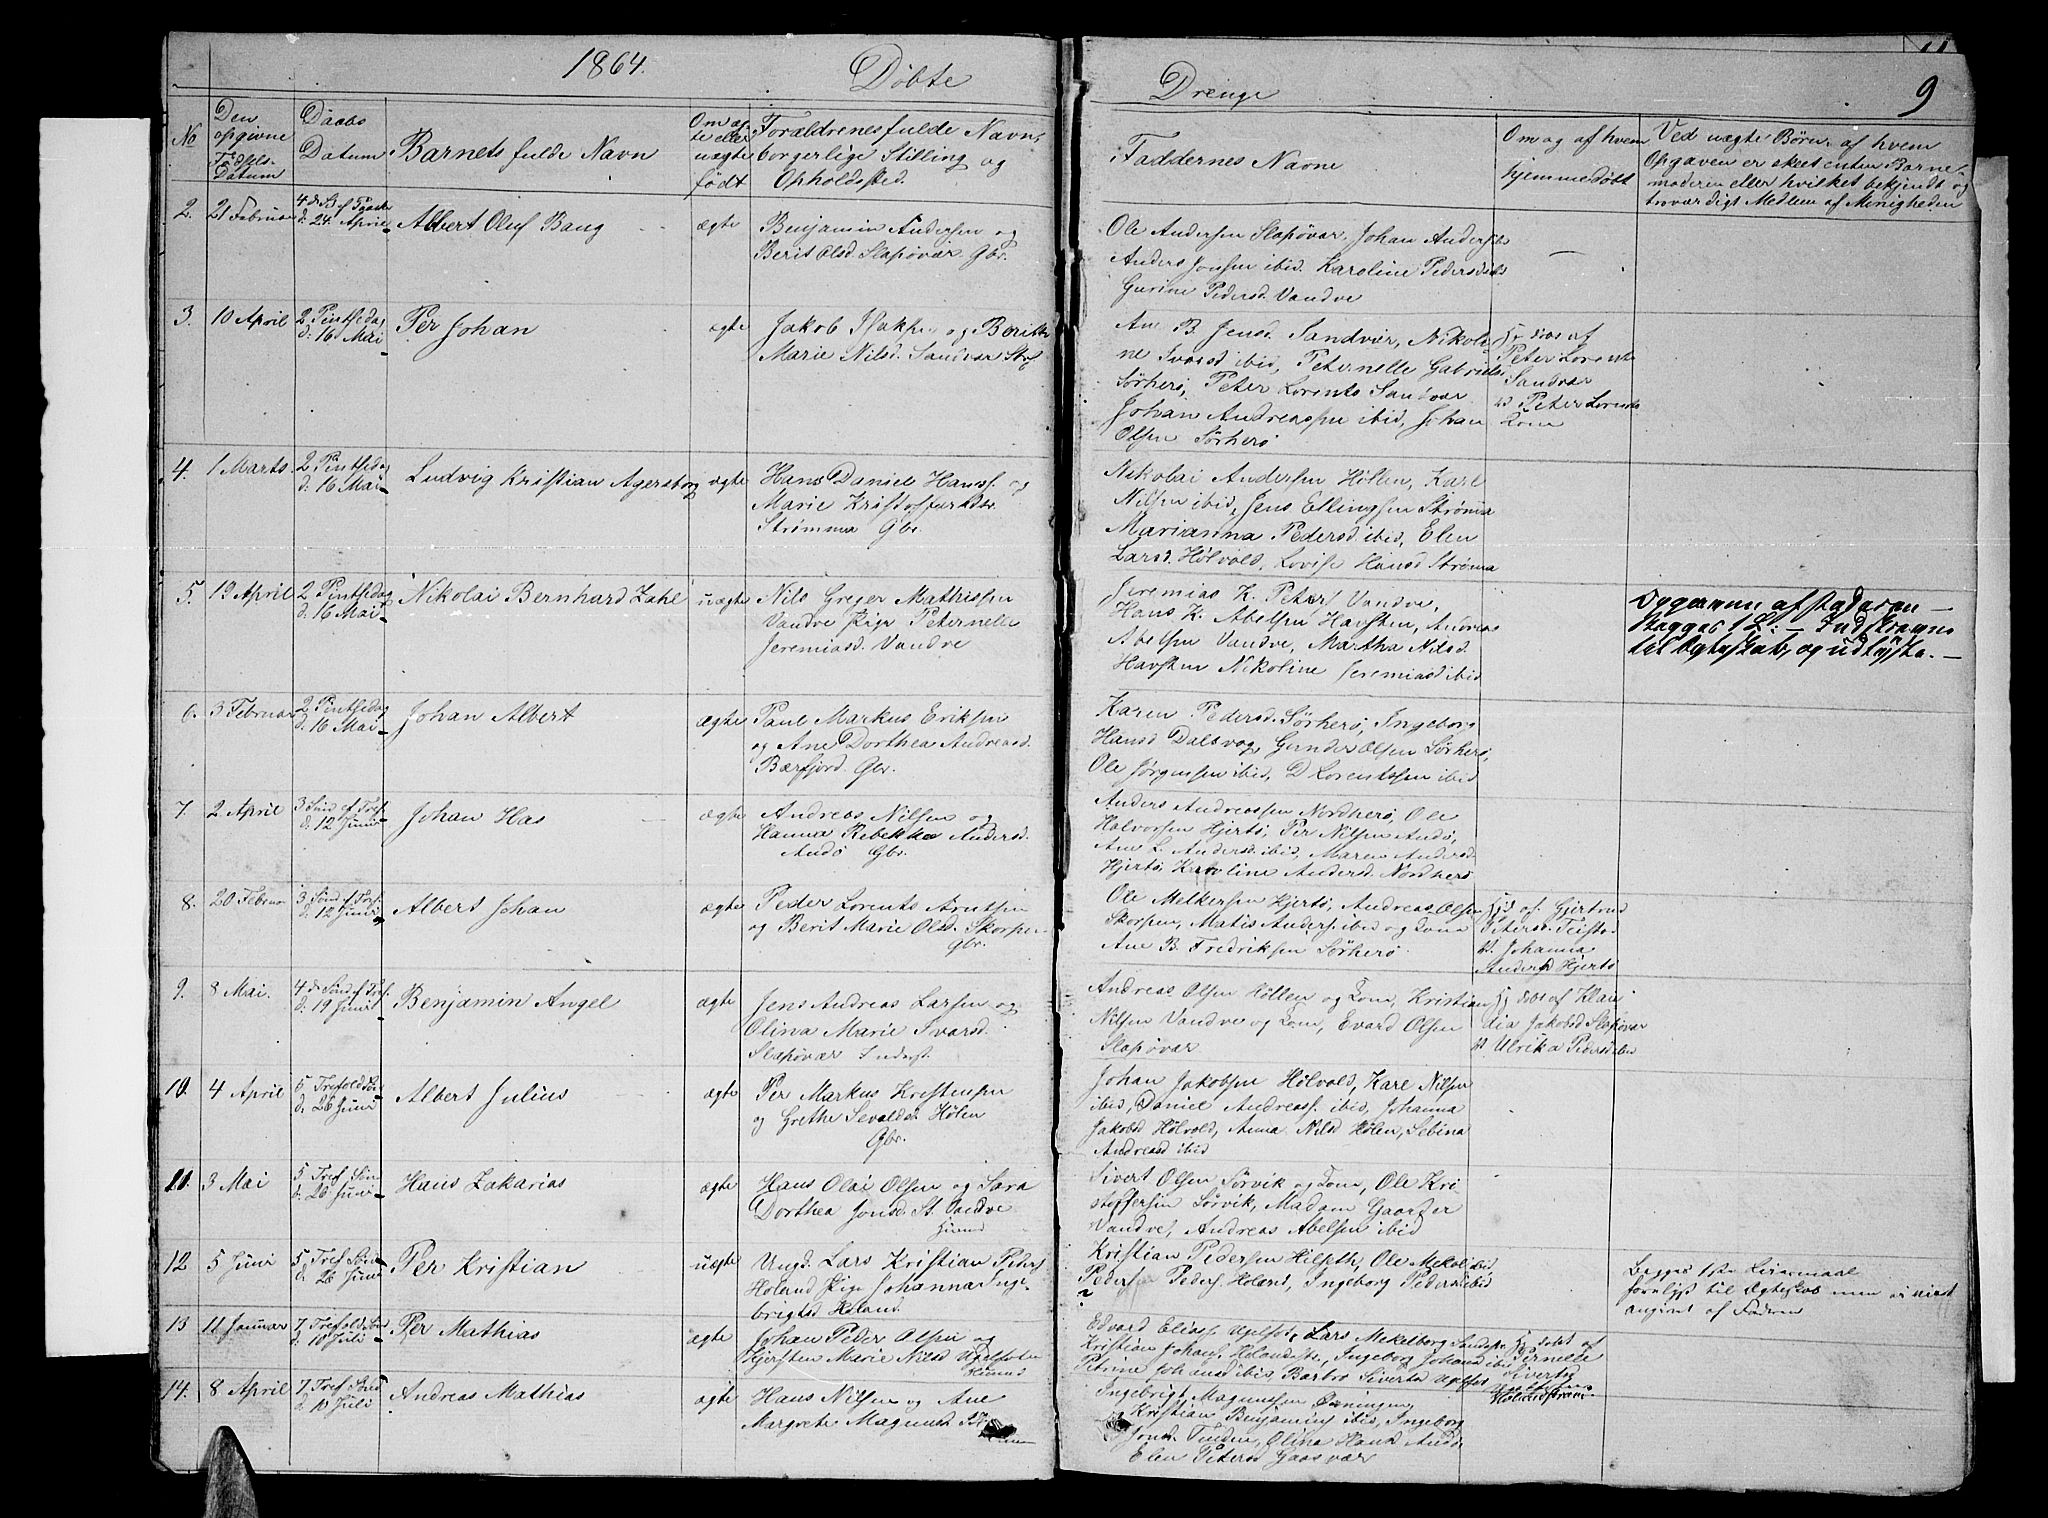 1864.
Døbte
Drenge
9
No
Den opgivne Fødsels Datum
Daabs Datum
Barnets fulde Navn
Om ægte eller uægte født
Forældrenes fulde Navn, borgerlige Stilling og Opholdssted.
Faddernes Navne
Om og af hvem hjemmedøbt
Ved uægte Børn, af hvem Opgaven er skeet enten Barnemoderen eller hvilket bekjendt og troværdigt Medlem af Menigheden
2. 21 Februar
d. 24. April
Albert Oluf Bang
ægte
Benjamin Andersen og
Berit Olsd. Slapøvær Gbr.
Ole Andersen Slapøvær, Johan Anders
Anders Jonsen ibid. Karoline Pedersd ibd
Gurine Pedersd. Vandve
3. 10 April
2 Pintsedag
d. 16 Mai
Per Johan
ægte
Jakob og Berith
Marie Nilsd. Sandvær
Ane B. Jensd. Sandvær, Nikoli
ne Ivarsd ibid, Peternelle Gabriels
Sørherø, Peter Lorents Sandvær
Johan Andreassen ibid, Johan
Olsen Sørherø
Hj. døbt af
Peter Lorents
Sandvær
Peter Lorents
Kone
4. 1 Marts.
2 Pintsedag
d. 16 Mai
Ludvig Kristian Agersborg
ægte
Hans Daniel Hanss. og
Marie Kristoffersdtr.
Strømma Gbr.
Nikolai Andersen Høllen, Karl
Nilsen ibid, Jens Ellingsen Strøma
Marianna Pedersd ibid, Elen
Larsd. Hølvold, Lovise Hansd Strøma
5. 19 April
2 Pintsedag
d. 16 Mai
Nikolai Bernhard Zahl
uægte
Nils Greger Mathissen
Vandve Pige Peternelle
Jeremiasd. Vandve
Jeremias K. Peters Vandve,
Hans K. Abelsen Havsten, Andreas
Abelsen Vandve, Martha Nilsd.
Havsten Nikoline Jeremiasd ibid
Opgivven af Faderen —
Begges 1 L: —
til Ægteskab, og udlyste. —
6. 3 Februar
2 Pintsedag
d. 16 Mai
Johan Albert
ægte
Paul Markus Eriksen
og Ane Dorthea Andreasd.
Bærfjord. Gbr.
Karen Pedersd. Sørherø, Ingeborg
Hansd Dalsvog, Gunder Olsen Sørherø,
Ole Jørgensen ibid, D Lorentssen ibid
7. 2 April
3 Sønd ef Tref.
d. 12 Juni
Johan Has
ægte
Andreas Nilsen og
Hanna Rebekka Andersd.
Andø Gbr.
Anders Andreassen Nordherø, Ole
Halvorsen Hjertø, Per Nilsen Andø,
Ane L. Andersd. ibid, Maren Andersd.
Hjertø, Karoline Andersd. Nordherø
8. 20 Februar
3 Sønd ef Tref.
d. 12 Juni
Albert Johan
ægte
Peder Lorents Arntsen
og Berit Marie Olsd. Skorpen
Gbr.
Ole Melkersen Hjertø, Andreas Olsen
Skorpen, Matis Anders. ibid og Kone
Ane B. Fredriksen Sørherø
Hjd af: Gjertrud
Petersd.
Johanna
Andersd Hjertø
9. 8 Mai.
4 de Sønd ef Tref.
d. 19 Juni
Benjamin Angel
ægte
Jens Andreas Larsen og
Olina Marie Ivarsd.
Slapøvær Inderst.
Andreas Olsen Høllen og Kone, Kristian
Nilsen Vandve og Kone, Evard Olsen
Slapøvær
Hj døbt af Klau
dia Jakobsd Slapøvær
Ulrika Pedersd ibid
10. 4 April
5 Trefold Søn
d. 26 Juni
Albert Julius
ægte
Per Markus Kristensen
og Grethe Sevaldsd. Hølen
Gbr.
Johan Jakobsen Hølvold, Karl Nilsen
ibid, Daniel Andreass. ibid, Johanna
Jakobsd Hølvold, Anna Nilsd Hølen, Sebina
Andreasd ibid
11. 3 Mai
5 Tref Søn
d. 26 Juni
Hans Zakarias
ægte
Hans Olai Olsen og Sara
Dorthea Jonsd. St. Vandve
Huusmd
Sivert Olsen Sørvik og Kone, Ole Kri
stoffersen Sørvik, Madam Gaarder
Vandve, Andreas Abelsen ibid
12 5 Juni
5 Tref Søn
d. 26 Juni
Per Kristian
uægte
Ungd. Lars Kristian Peders
Høland Pige Johanna Inge-
brigtsd Høland.
Kristian Pedersen Hilseth, Ole Mekel ibid,
Peder Peders Høland, Ingeborg Pedersd ibid
?
Begges 1ste Leiermaal
forulyst til Ægteskab men
angivet af Faderen
13 11 Januar
7 Trefold Sønd
d. 10 Juli
Per Mathias
ægte
Johan Peder Olsen og
Kjersten Marie Nilsd
Huusmd
Edvard Eliass, Lars Mekelborg
Kristian Johans., Ingeborg Johansd ibid
Petrine Johansd ibid, Barbro Sivertsd
Hj. døbt af
Pernelle
Sivertsd
14. 8 April
7 Tref Sønd
d. 10 Juli
Andreas Mathias
ægte
Hans Nilsen og Ane
Margrete Magnusd
Ingebrigt Magnussen
Kristian Benjamins ibid, Ingeborg
Jonsd., Olina Hansd Andø,
Elen Petersd Gaasvær